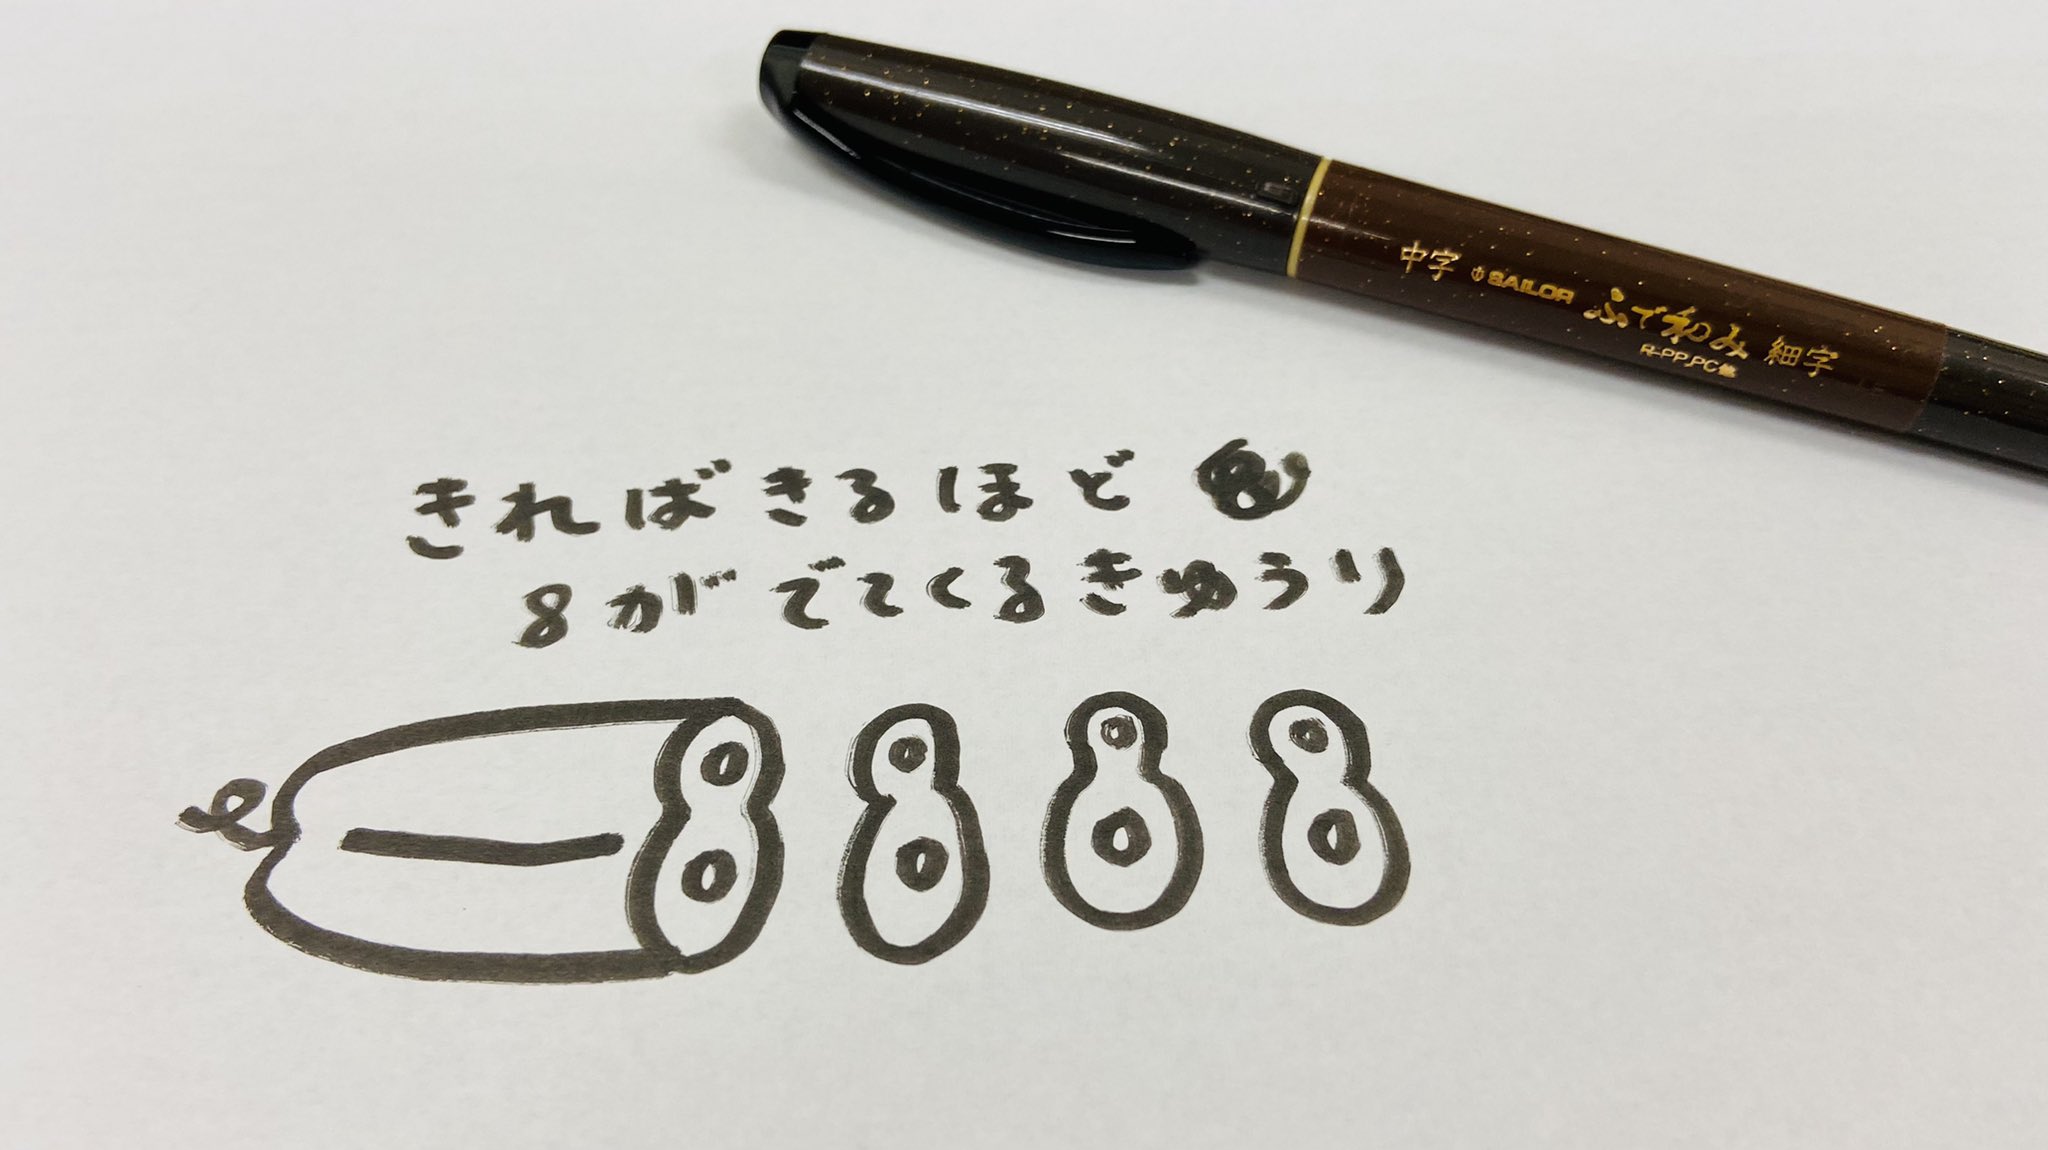 中字 SAILOR ふで和み 細字
R-PP,PC
きればきるほど
8がでてくるきゅうり